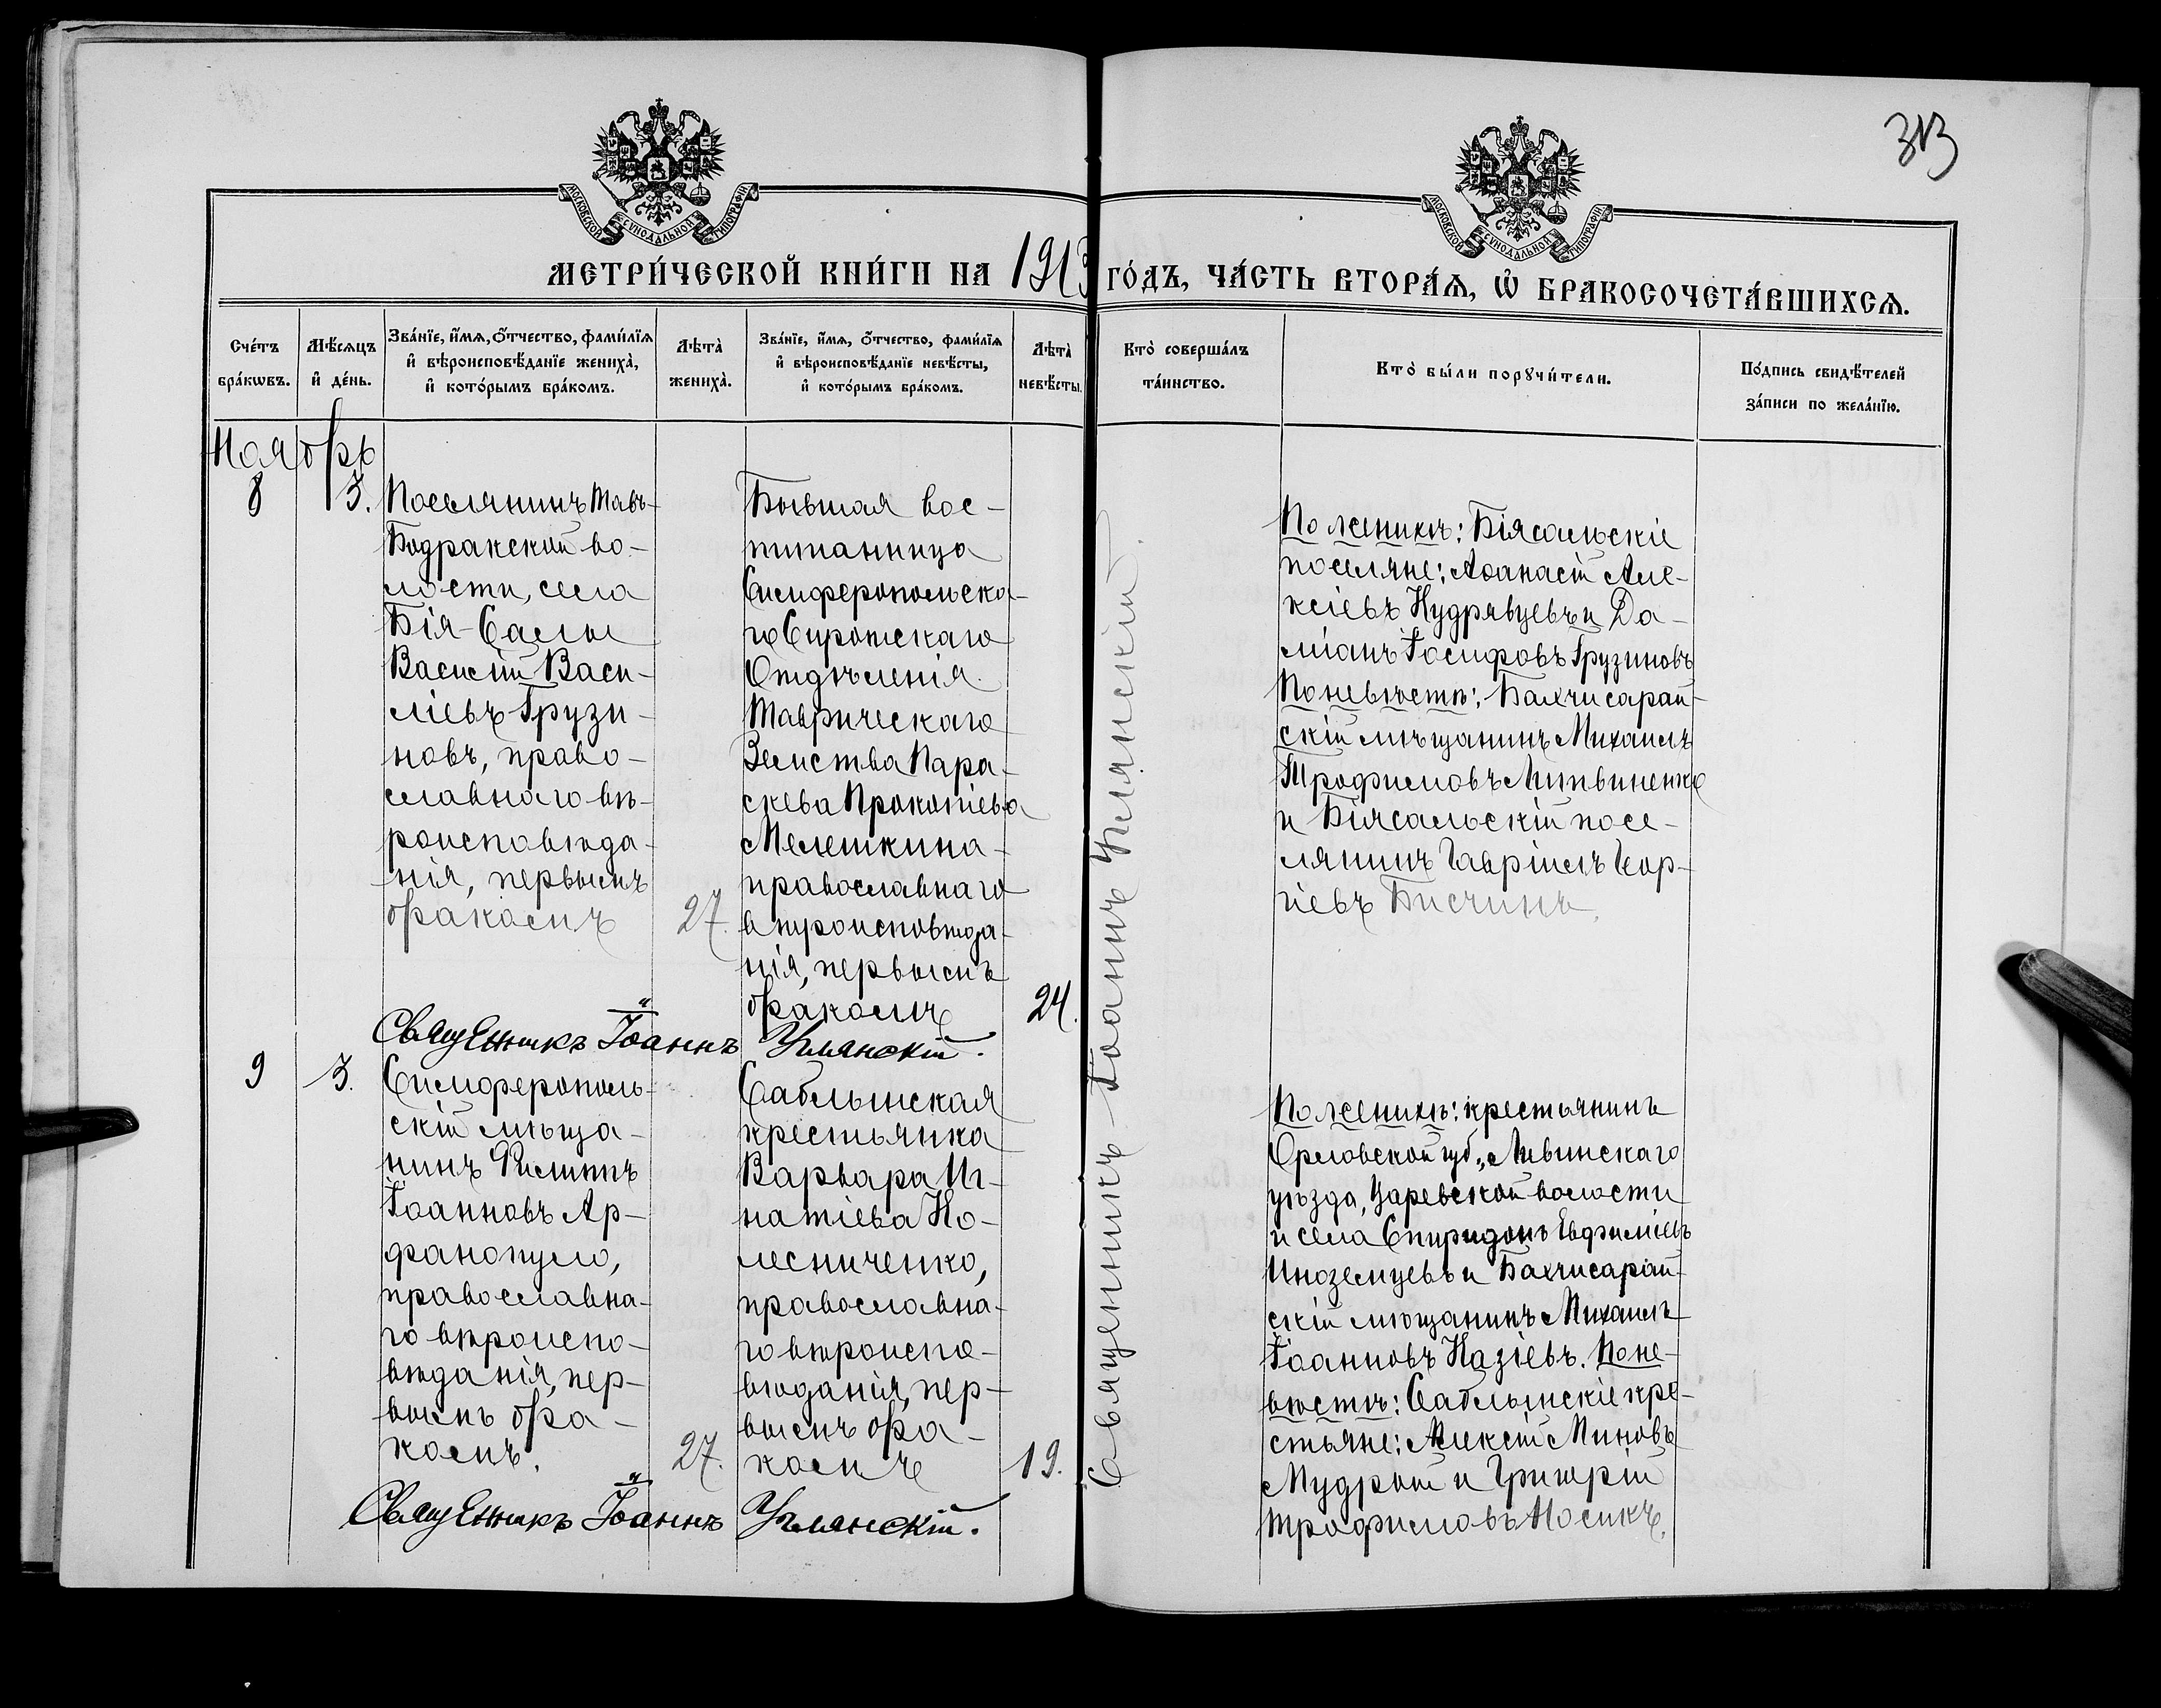 313
МОСКОВСКОЙ СѴНОДАЛЬНОЙ ТИПОГРАФІИ
МОСКОВСКОЙ СѴНОДАЛЬНОЙ ТИПОГРАФІИ
МЕТРИ́ЧЕСКОЙ КНИ́ГИ НА 1913 ГО́ДЪ, ЧА́СТЬ ВТОРА́Ѧ, Ѽ БРАКОСОЧЕТА́ВШИХСѦ.
Сче́тъ бра́кѡвъ.
Мѣ́сѧцъ и҆ де́нь.
Зва́нїе, и҆́мѧ, ѻ҆́тчество, фами́лїѧ
и҆ вѣроисповѣ́данїе жениха̀,
и҆ кото́рымъ бра́комъ.
Лѣта̀ жениха̀.
Зва́нїе, и҆́мѧ, ѻ҆́тчество, фами́лїѧ
и҆ вѣроисповѣ́данїе невѣ́сты,
и҆ кото́рымъ бра́комъ.
Лѣта̀ невѣ́сты.
Кто̀ соверша́лъ
та́инство.
Кто̀ бы́ли порꙋчи́тели.
По́дпись свидѣ́телей
за́писи по жела́нїю.
Ноябрь
8
3.
Поселянинъ Тавъ-
Бодракской во-
лости, села
Бія-Салы
Василій Васи-
ліевъ Грузи-
новъ, право-
славнаго вѣ-
роисповѣда-
нія, первымъ
бракомъ
27.
Бывшая вос-
питанница
Симферопольска-
го Сиротскаго
Отдѣленія
Таврическаго
Земства Пара-
скева Прокопіева
Мелешкина
православнаго
вѣроисповѣда-
нія, первымъ
бракомъ
24.
Священникъ Іоаннъ Углянскій.
По женихѣ: Біясальскіе
поселяне: Аѳанасій Але-
ксіевъ Кудрявцевъ и Да-
міанъ Іосифовъ Грузиновъ
По невѣстѣ: Бахчисарай-
скій мѣщанинъ Михаилъ
Трофимовъ Литвиненко
и Біясальскій посе-
лянинъ Гавріилъ Геор-
гіевъ Бисчинъ.
Священникъ Іоаннъ Углянскій.
9
3.
Симферополь-
скій мѣща-
нинъ Филиппъ
Іоанновъ Ар-
фанопуло,
православна-
го вѣроиспо-
вѣданія, пер-
вымъ бра-
комъ.
27.
Саблынская
крестьянка
Варвара Иг-
натіева Ко-
лесниченко,
православна-
го вѣроиспо-
вѣданія, пер-
вымъ бра-
комъ
19.
Священникъ Іоаннъ Углянскій.
По женихѣ: крестьянинъ
Орловской губ., Ливинскаго
уѣзда, Царевской волости
и села Спиридонъ Евфиміевъ
Иноземцевъ и Бахчисарай-
скій мѣщанинъ Михаилъ
Іоанновъ Казіевъ. По не-
вѣстѣ: Саблынскіе кре-
стьяне: Алексій Миновъ
Мудрый и Григорій
Трофимовъ Носикъ.